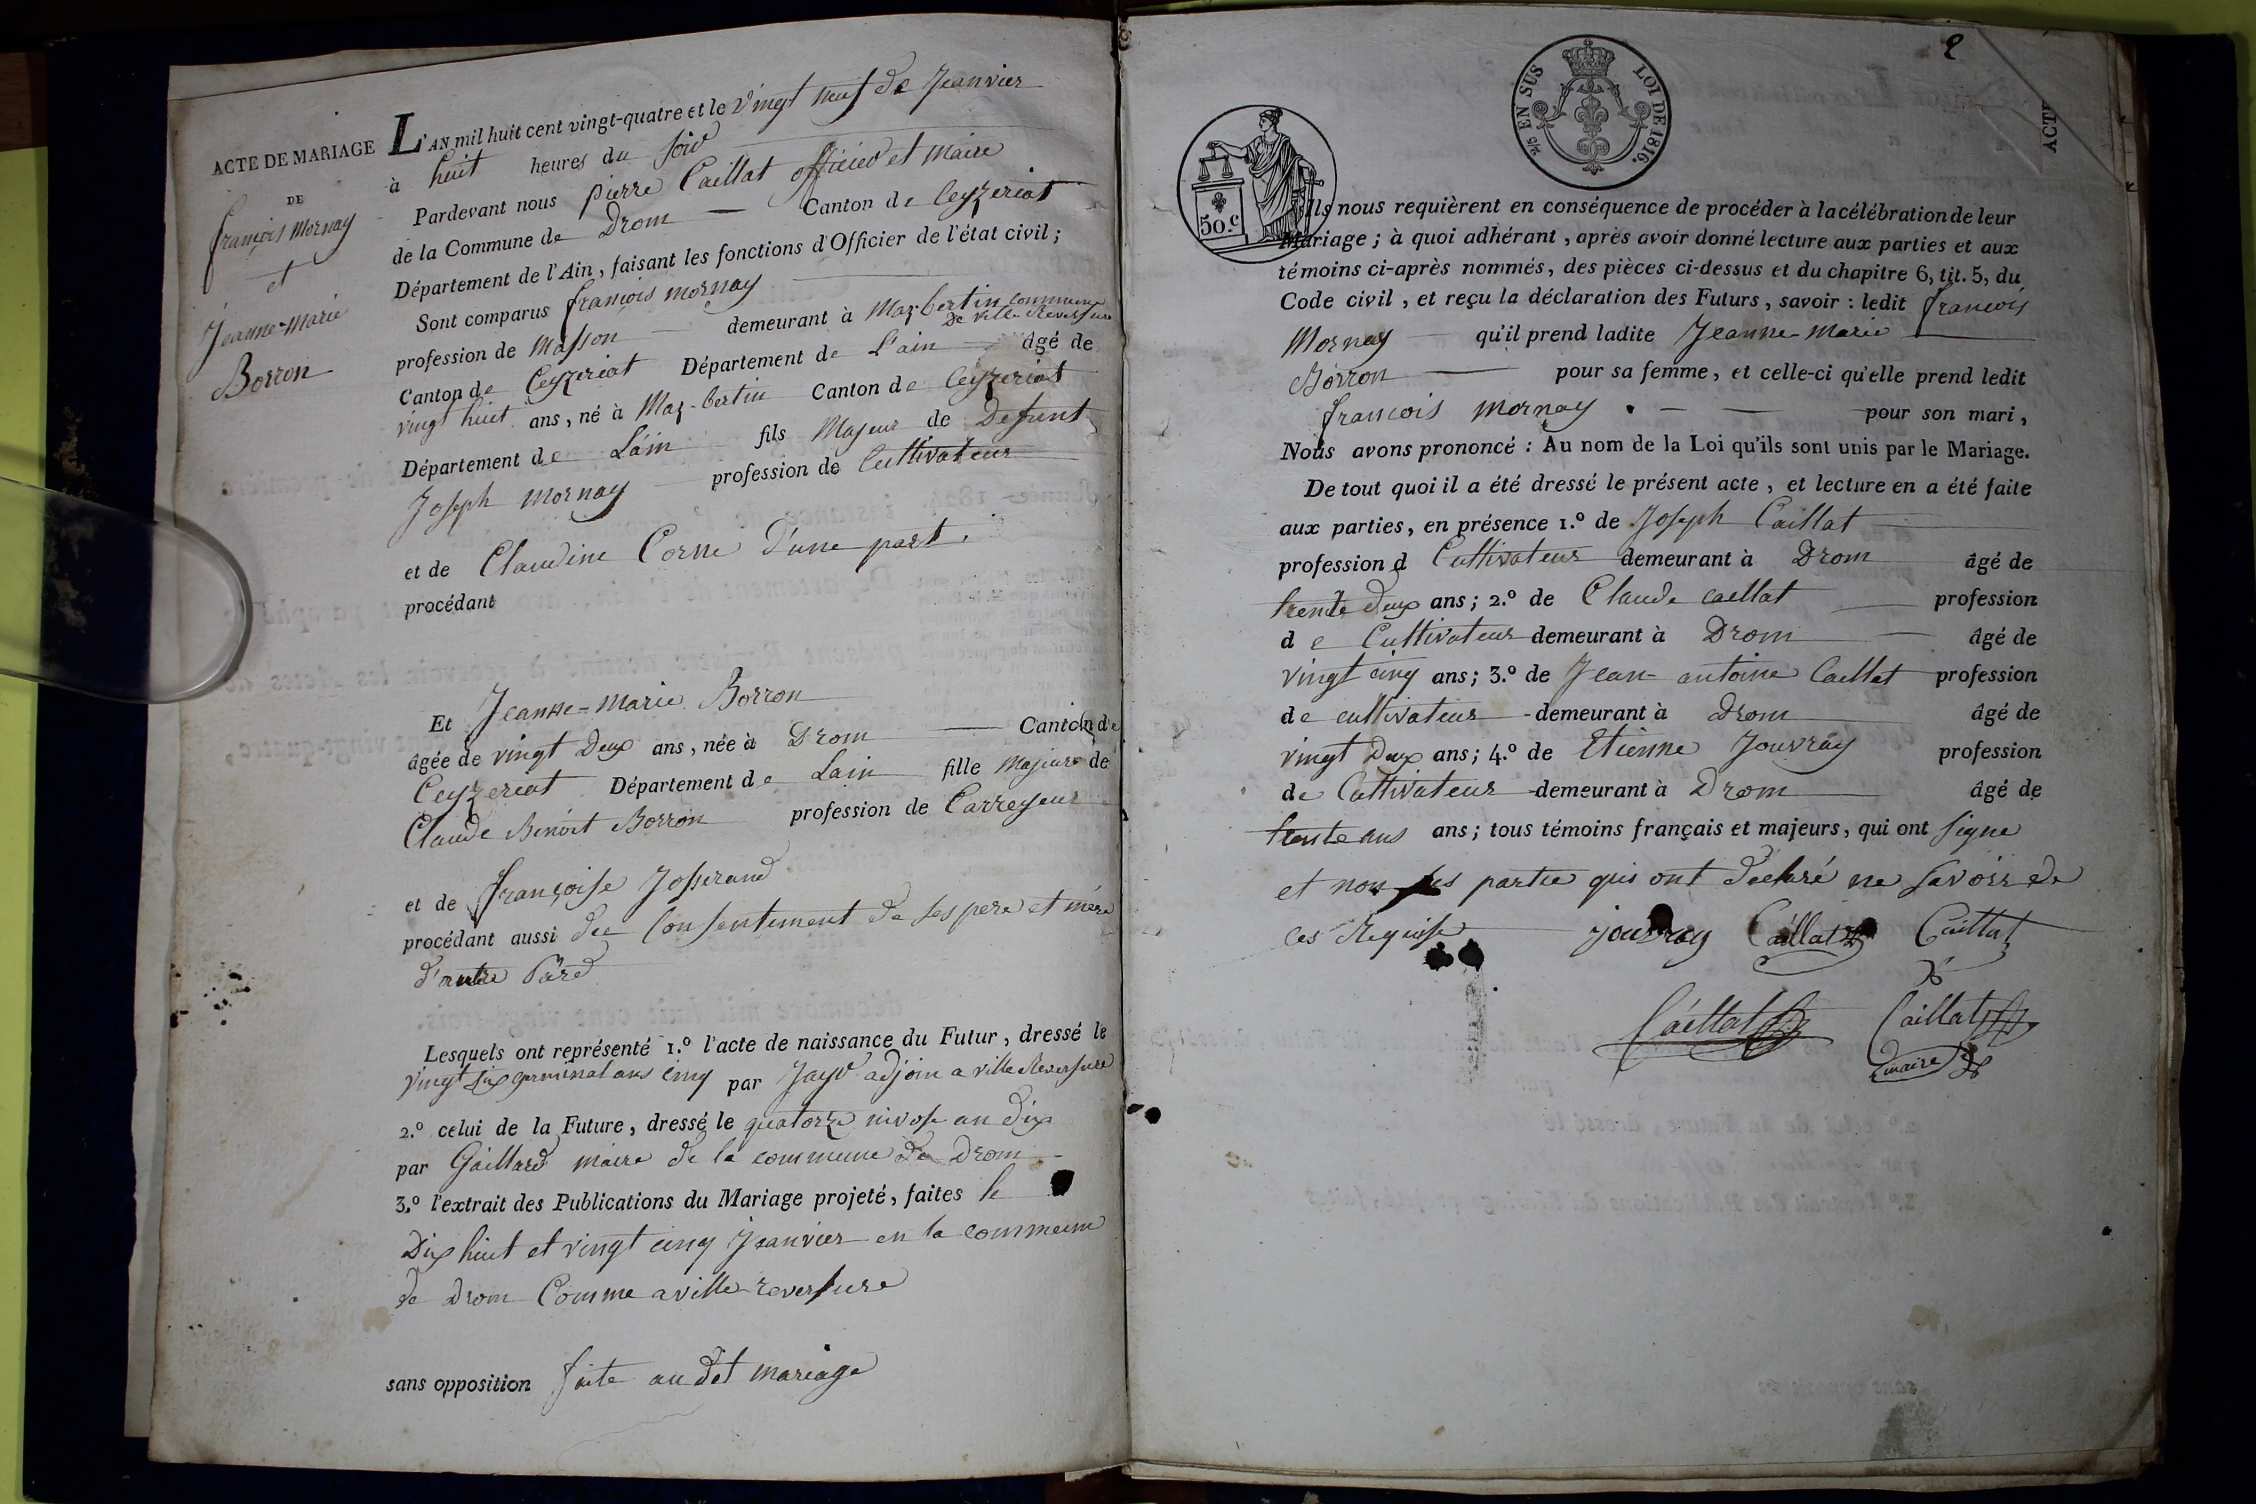 ACTE DE MARIAGE
DE
françois Mornay
et
Jeanne-Marie
Borron
L'AN mil huit cent vingt-quatre et le vingt neuf de Jeanvier
à huit heures du soir
Pardevant nous pierre Caillat officier et Maire
de la Commune de Drom Canton de Ceyzeriat
Département de l'Ain, faisant les fonctions d'Officier de l'état civil;
Sont comparus françois mornay
profession de Masson demeurant à Maz-bertin commune
De ville Reversure
Canton de Ceyzeriat Département de L'ain âgé de
vingt huit ans, né à Maz-bertin Canton de Ceyzeriat
Département de Lain fils Majeur de Defunt
Joseph mornay profession de Cultivateur
et de Claudine Corne d'une part.
procédant
Et Jeanne-Marie Borron
âgée de vingt Deux ans, née à Drom Canton de
Ceyzeriat Département de Lain fille Majeure de
Claude Benoit Borron profession de Carreyeur
et de françoise Josserand
procédant aussi du Consentement de ses pere et mere
d'autre Pard
Lesquels ont représenté 1.º l'acte de naissance du Futur, dressé le
vingt six germinal ans cinq par Jayr adjoin a ville Reversure
2.º celui de la Future, dressé le quatorze nivose an dix
par Gaillard maire de la commune de Drom
3.º l'extrait des Publications du Mariage projeté, faites le
Dix huit et vingt cinq Jeanvier en la commune
de Drom Comme a ville reversure
sans opposition faite au det mariage
2
EN SUS LOI DE 1816.
50.C
ACTE
Ils nous requièrent en conséquence de procéder à la célébration de leur
Mariage; à quoi adhérant, après avoir donné lecture aux parties et aux
témoins ci-après nommés, des pièces ci-dessus et du chapitre 6, tit. 5, du
Code civil, et reçu la déclaration des Futurs, savoir: ledit francois
Mornay qu'il prend ladite Jeanne-Marie
Borron pour sa femme, et celle-ci qu'elle prend ledit
francois Mornay pour son mari,
Nous avons prononcé: Au nom de la Loi qu'ils sont unis par le Mariage.
De tout quoi il a été dressé le présent acte, et lecture en a été faite
aux parties, en présence 1.º de Joseph Caillat
profession d Cultivateur demeurant à Drom âgé de
trente deux ans; 2.º de Claude caillat profession
de Cultivateur demeurant à Drom âgé de
vingt cinq ans; 3.º de Jean-antoine Caillat profession
de cultivateur demeurant à Drom âgé de
vingt Deux ans; 4.º de Etienne Jouvray profession
de Cultivateur demeurant à Drom âgé de
trente ans ans; tous témoins français et majeurs, qui ont signe
et non les partie qui ont declaré ne savoir de
ces Requise jouvray Caillat Caillat
Caillat Caillat
maire